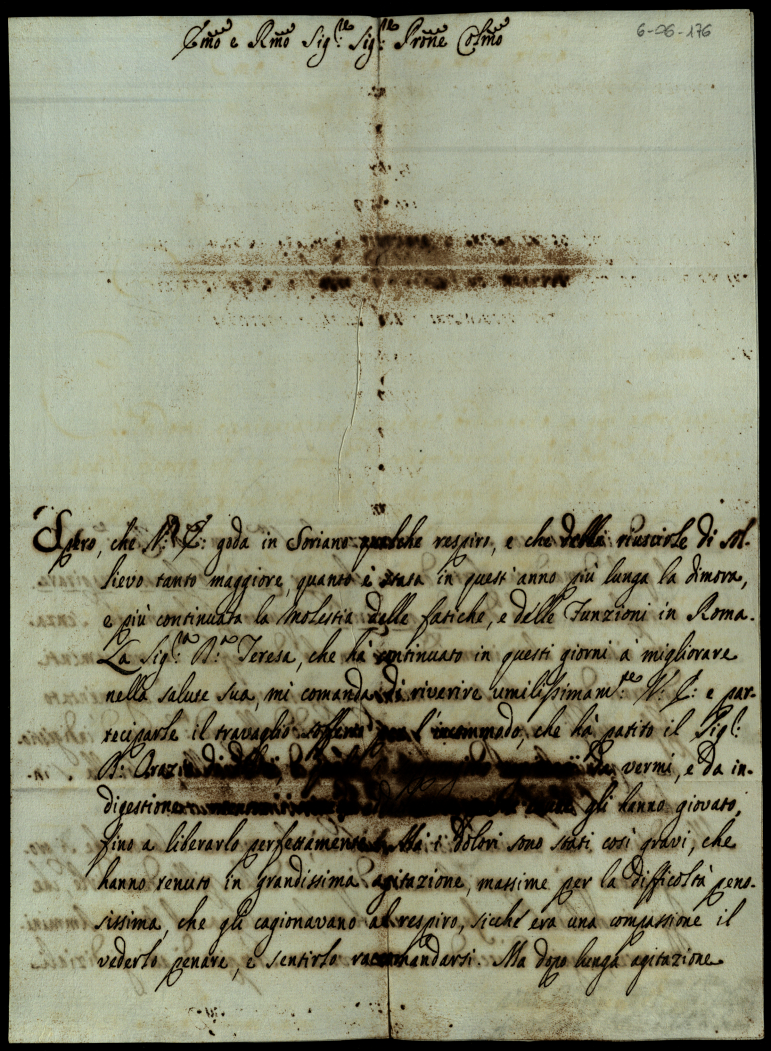 Emo e Rmo Sig:re Sig:re Prone Colmo
6-06-176
Spero, che V: E: goda in Soriano qualche respiro, e che debba riuscirle di sol-
lievo tanto maggiore, quanto è stata in quest'anno più lunga la dimora,
e più continuata la molestia delle fatiche, e delle Funzioni in Roma.
La Sig:ra B:a Teresa, che hà continuato in questi giorni à migliorare
nella salute sua, mi comanda di riverire umilissimam:te V: E: e par-
teciparle il travaglio sofferto per l'incommodo, che hà patito il Sig:
B: Orazio vermi, e da in-
digestione gli hanno giovato,
fino a liberarlo perfettamente. Mà i dolori sono stati così gravi, che
hanno tenuto in grandissima agitazione, massime per la difficoltà peno-
sissima, che gli cagionavano al respiro, sicché era una compassione il
vederlo penare, e sentirlo raccomandarsi. Ma dopo lunga agitazione